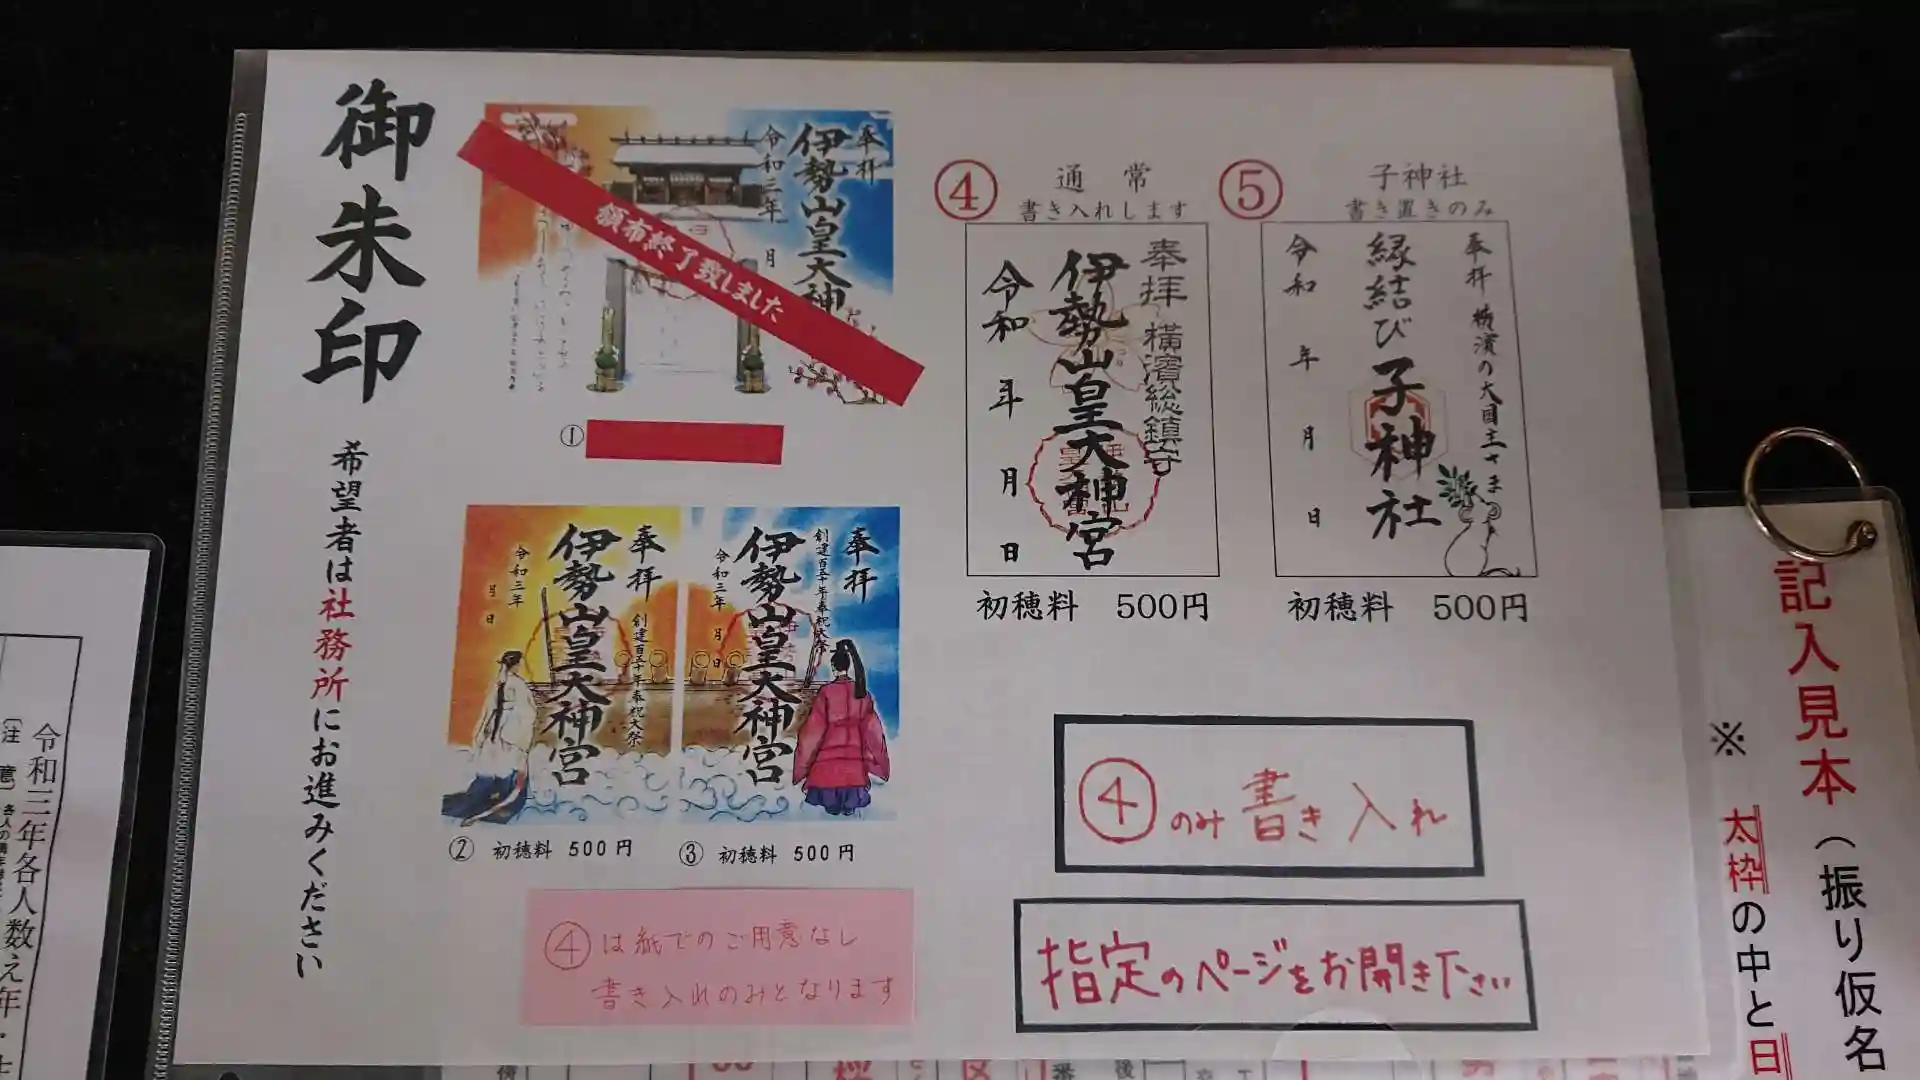 御朱印
希望者は社務所にお進みください
奉拝
伊勢山皇大神
令和三年
月
頒布終了致しました
①
奉拝
創建百五十年奉祝大祭
伊勢山皇大神宮
令和三年
月 日
② 初穂料 500円
奉拝
創建百五十年奉祝大祭
伊勢山皇大神宮
令和三年
月 日
③ 初穂料 500円
④は紙でのご用意なし
書き入れのみとなります
④ 通常
書き入れします
奉拝 横濱総鎮守
伊勢山皇大神宮
令和 年 月 日
初穂料 500円
⑤ 子神社
書き置きのみ
奉拝 横濱の大国主さま
縁結び 子神社
令和 年 月 日
初穂料 500円
④のみ書き入れ
指定のページをお開き下さい
記入見本(振り仮名
※ 太枠の中と日
令和三年各人数え年・